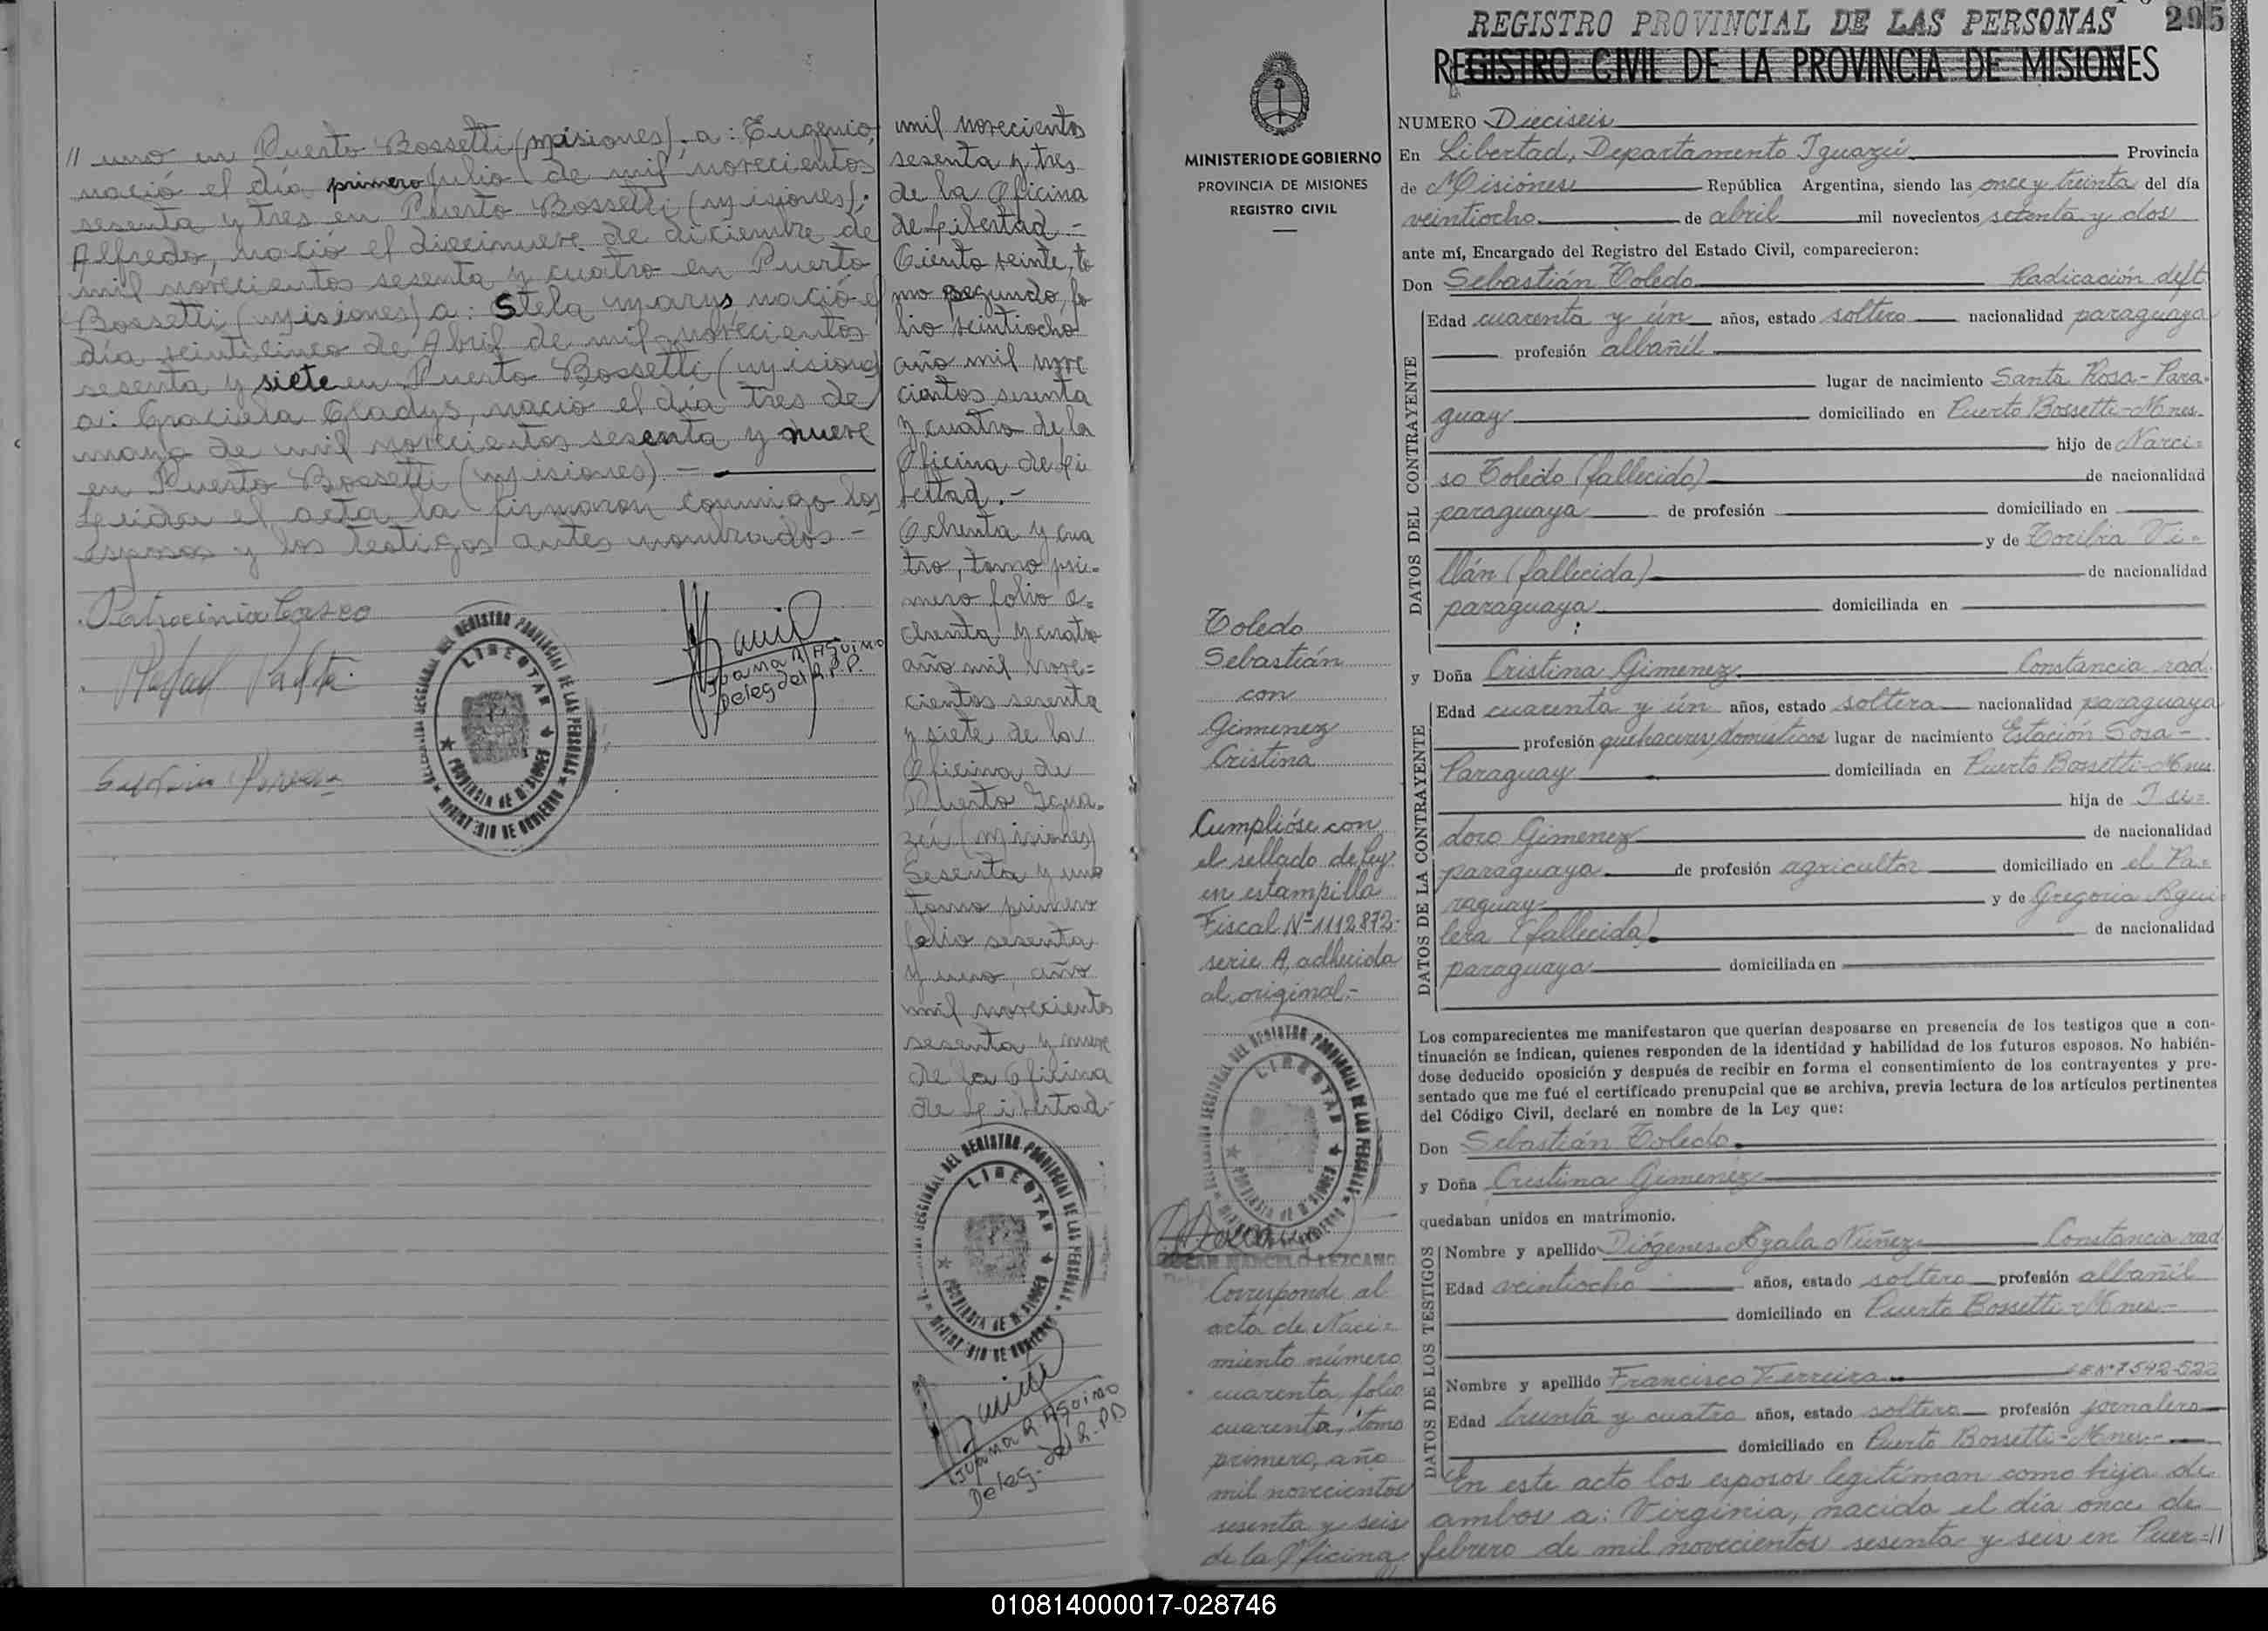 // uno en Puerto Bossetti (Misiones); a: Eugenio,
nació el día primero julio de mil novecientos
sesenta y tres en Puerto Bossetti (Misiones);
Alfredo, nació el diecinueve de diciembre de
mil novecientos sesenta y cuatro en Puerto
Bossetti (Misiones) a: Stela Marys nació el
día veinticinco de Abril de mil novecientos
sesenta y siete en Puerto Bossetti (Misiones)
a: Graciela Gladys, nació el día tres de
mayo de mil novecientos sesenta y nueve
en Puerto Bossetti (Misiones) -
Leída el acta la firmaron conmigo los
esposos y los testigos antes nombrados -
Patrocinia Casco
Juana R Aguino
Deleg del R.P.P.
LIBERTAD
PROVINCIA DE MISIONES
MINISTERIO DE GOBIERNO
mil novecientos
sesenta y tres
de la Oficina
de Libertad -
Ciento veinte, to
mo segundo, fo
lio veintiocho
año mil nove
cientos sesenta
y cuatro de la
Oficina de Li
bertad.-
Ochenta y cua
tro, tomo pri-
mero folio o-
chenta y cuatro
año mil nove=
cientos sesenta
y siete de la
Oficina de
Puerto Igua-
zú (Misiones)
Sesenta y uno
tomo primero
folio sesenta
y uno, año
mil novecientos
sesenta y nueve
de la Oficina
de Libertad-
LIBERTAD
PROVINCIA DE MISIONES
MINISTERIO DE GOBIERNO
Juana R Aguino
Deleg. del R.PP
MINISTERIO DE GOBIERNO
PROVINCIA DE MISIONES
REGISTRO CIVIL
Toledo
Sebastián
con
Gimenez
Cristina
Cumplióse con
el sellado de Ley
en estampilla
Fiscal Nº 1112872-
serie A, adherida
al original.-
LIBERTAD
PROVINCIA DE MISIONES
OSCAR MARCELO LEZCANO
Corresponde al
acta de Naci=
miento número
cuarenta, folio
cuarenta, tomo
primero, año
mil novecientos
sesenta y seis
de la Oficina
REGISTRO PROVINCIAL DE LAS PERSONAS
295
REGISTRO CIVIL DE LA PROVINCIA DE MISIONES
NUMERO Dieciseis
En Libertad, Departamento Iguazú Provincia
de Misiones República Argentina, siendo las once y treinta del día
veintiocho de abril mil novecientos setenta y dos
ante mí, Encargado del Registro del Estado Civil, comparecieron:
Don Sebastián Toledo Radicación deft.
DATOS DEL CONTRAYENTE
Edad cuarenta y ún años, estado soltero nacionalidad paraguaya
profesión albañil
lugar de nacimiento Santa Rosa-Para-
guay domiciliado en Puerto Bossetti-Mnes.
hijo de Narci=
so Toledo (fallecido) de nacionalidad
paraguaya de profesión domiciliado en
y de Toribia Vi-
llán (fallecida) de nacionalidad
paraguaya domiciliada en
y Doña Cristina Gimenez Constancia rad.
DATOS DE LA CONTRAYENTE
Edad cuarenta y ún años, estado soltera nacionalidad paraguaya
profesión quehaceres domesticos lugar de nacimiento Estación Sosa-
Paraguay domiciliada en Puerto Bossetti-Mnes.
hija de Isi=
doro Gimenez de nacionalidad
paraguaya de profesión agricultor domiciliado en el Pa=
raguay y de Gregoria Agui
lera (fallecida) de nacionalidad
paraguaya domiciliada en
Los comparecientes me manifestaron que querían desposarse en presencia de los testigos que a con-
tinuación se indican, quienes responden de la identidad y habilidad de los futuros esposos. No habién-
dose deducido oposición y después de recibir en forma el consentimiento de los contrayentes y pre-
sentado que me fué el certificado prenupcial que se archiva, previa lectura de los artículos pertinentes
del Código Civil, declaré en nombre de la Ley que:
Don Sebastián Toledo
y Doña Cristina Gimenez
quedaban unidos en matrimonio.
DATOS DE LOS TESTIGOS
Nombre y apellido Diógenes Ayala Núñez Constancia rad
Edad veintiocho años, estado soltero profesión albañil
domiciliado en Puerto Bossetti-Mnes-
Nombre y apellido Francisco Ferreira L.E.Nº 7.542.522
Edad treinta y cuatro años, estado soltero profesión jornalero
domiciliado en Puerto Bossetti-Mnes-
En este acto los esposos legitiman como hija de
ambos a: Virginia, nacida el día once de
febrero de mil novecientos sesenta y seis en Puer=//
010814000017-028746